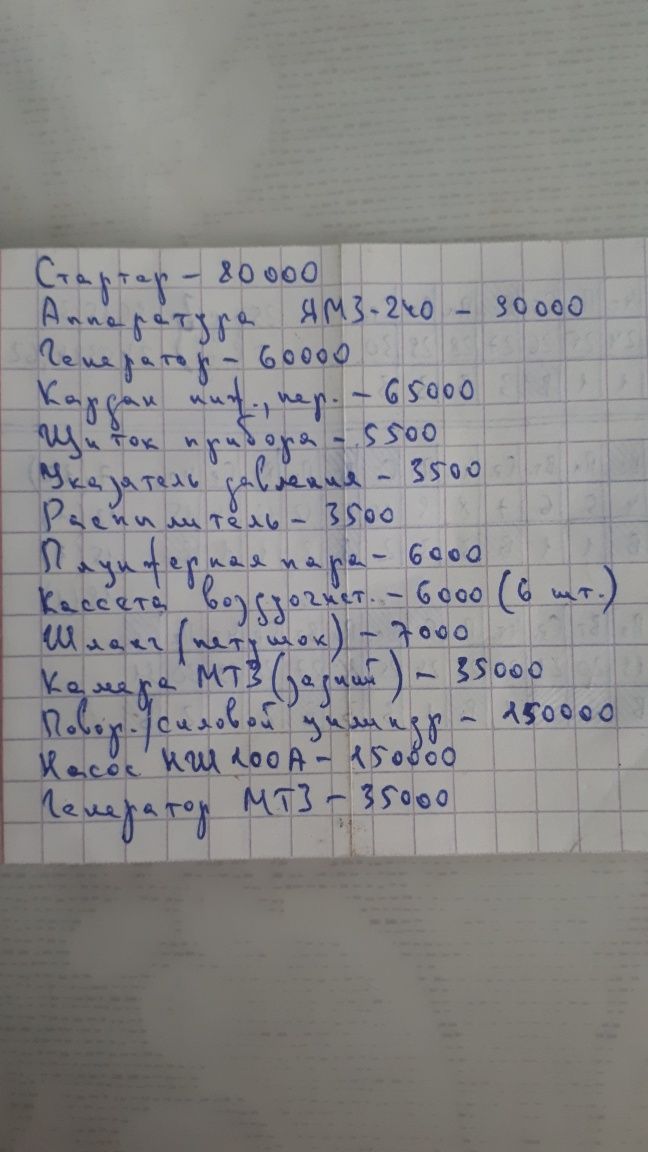 Стартер – 80000
Аппаратура ЯМЗ-240 – 90000
Генератор – 60000
Кардан ниж., пер. – 65000
Щиток прибора – 5500
Указатель давления – 3500
Распылитель – 3500
Плунжерная пара – 6000
Кассета воздухочист. – 6000 (6 шт.)
Шланг (петушок) – 7000
Камера МТЗ (задний) – 35000
Повор./силовой цилиндр – 150000
Насос НШ 100А – 150000
Генератор МТЗ – 35000